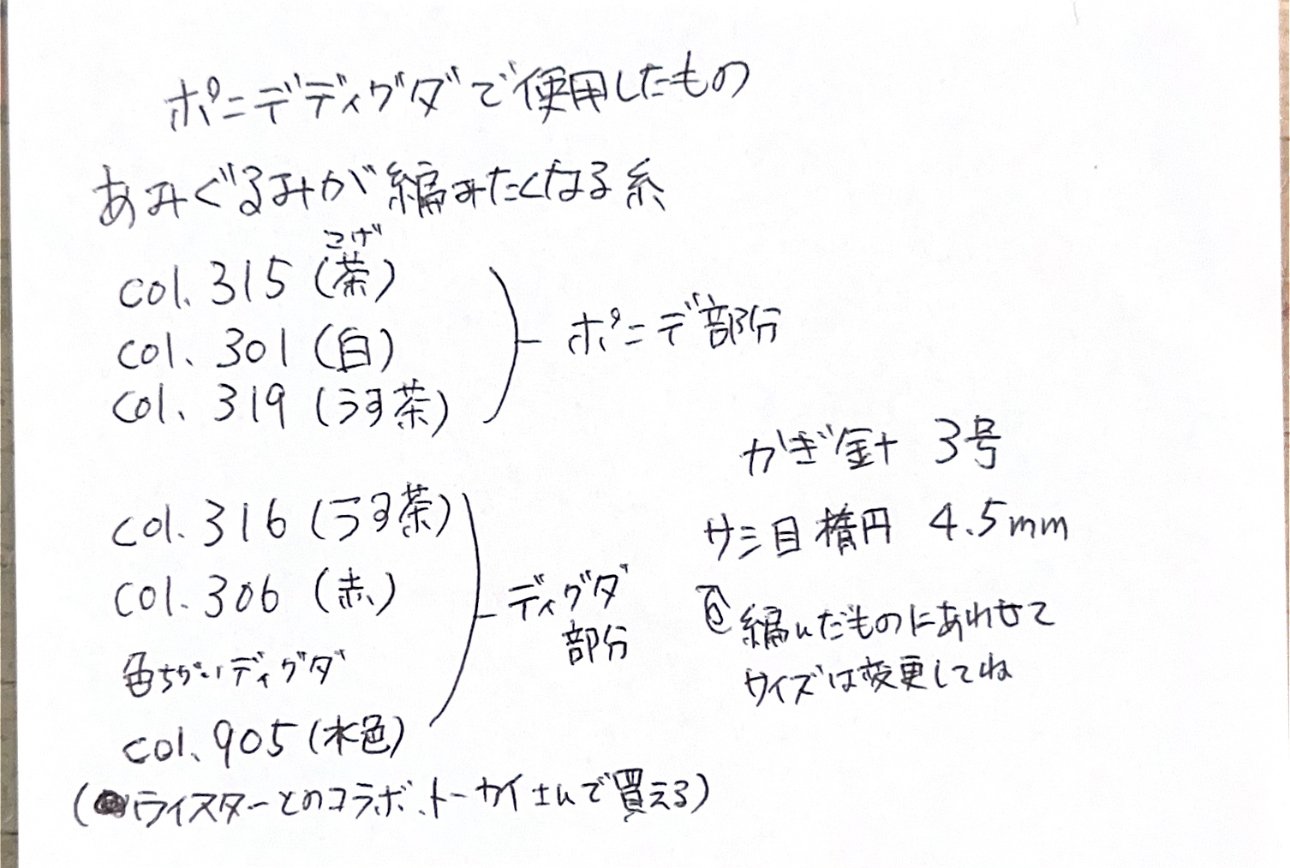 ポニデディグダで使用したもの
あみぐるみが編みたくなる糸
こげ
col. 315 (茶)
col. 301 (白)
col. 319 (うす茶)
ポニデ部分
col. 316 (うす茶)
col. 306 (赤)
色ちがいディグダ
col. 905 (水色)
ディグダ
部分
(ライスターとのコラボ、トーカイさんで買える)
かぎ針 3号
サシ目楕円 4.5mm
編んだものにあわせて
サイズは変更してね